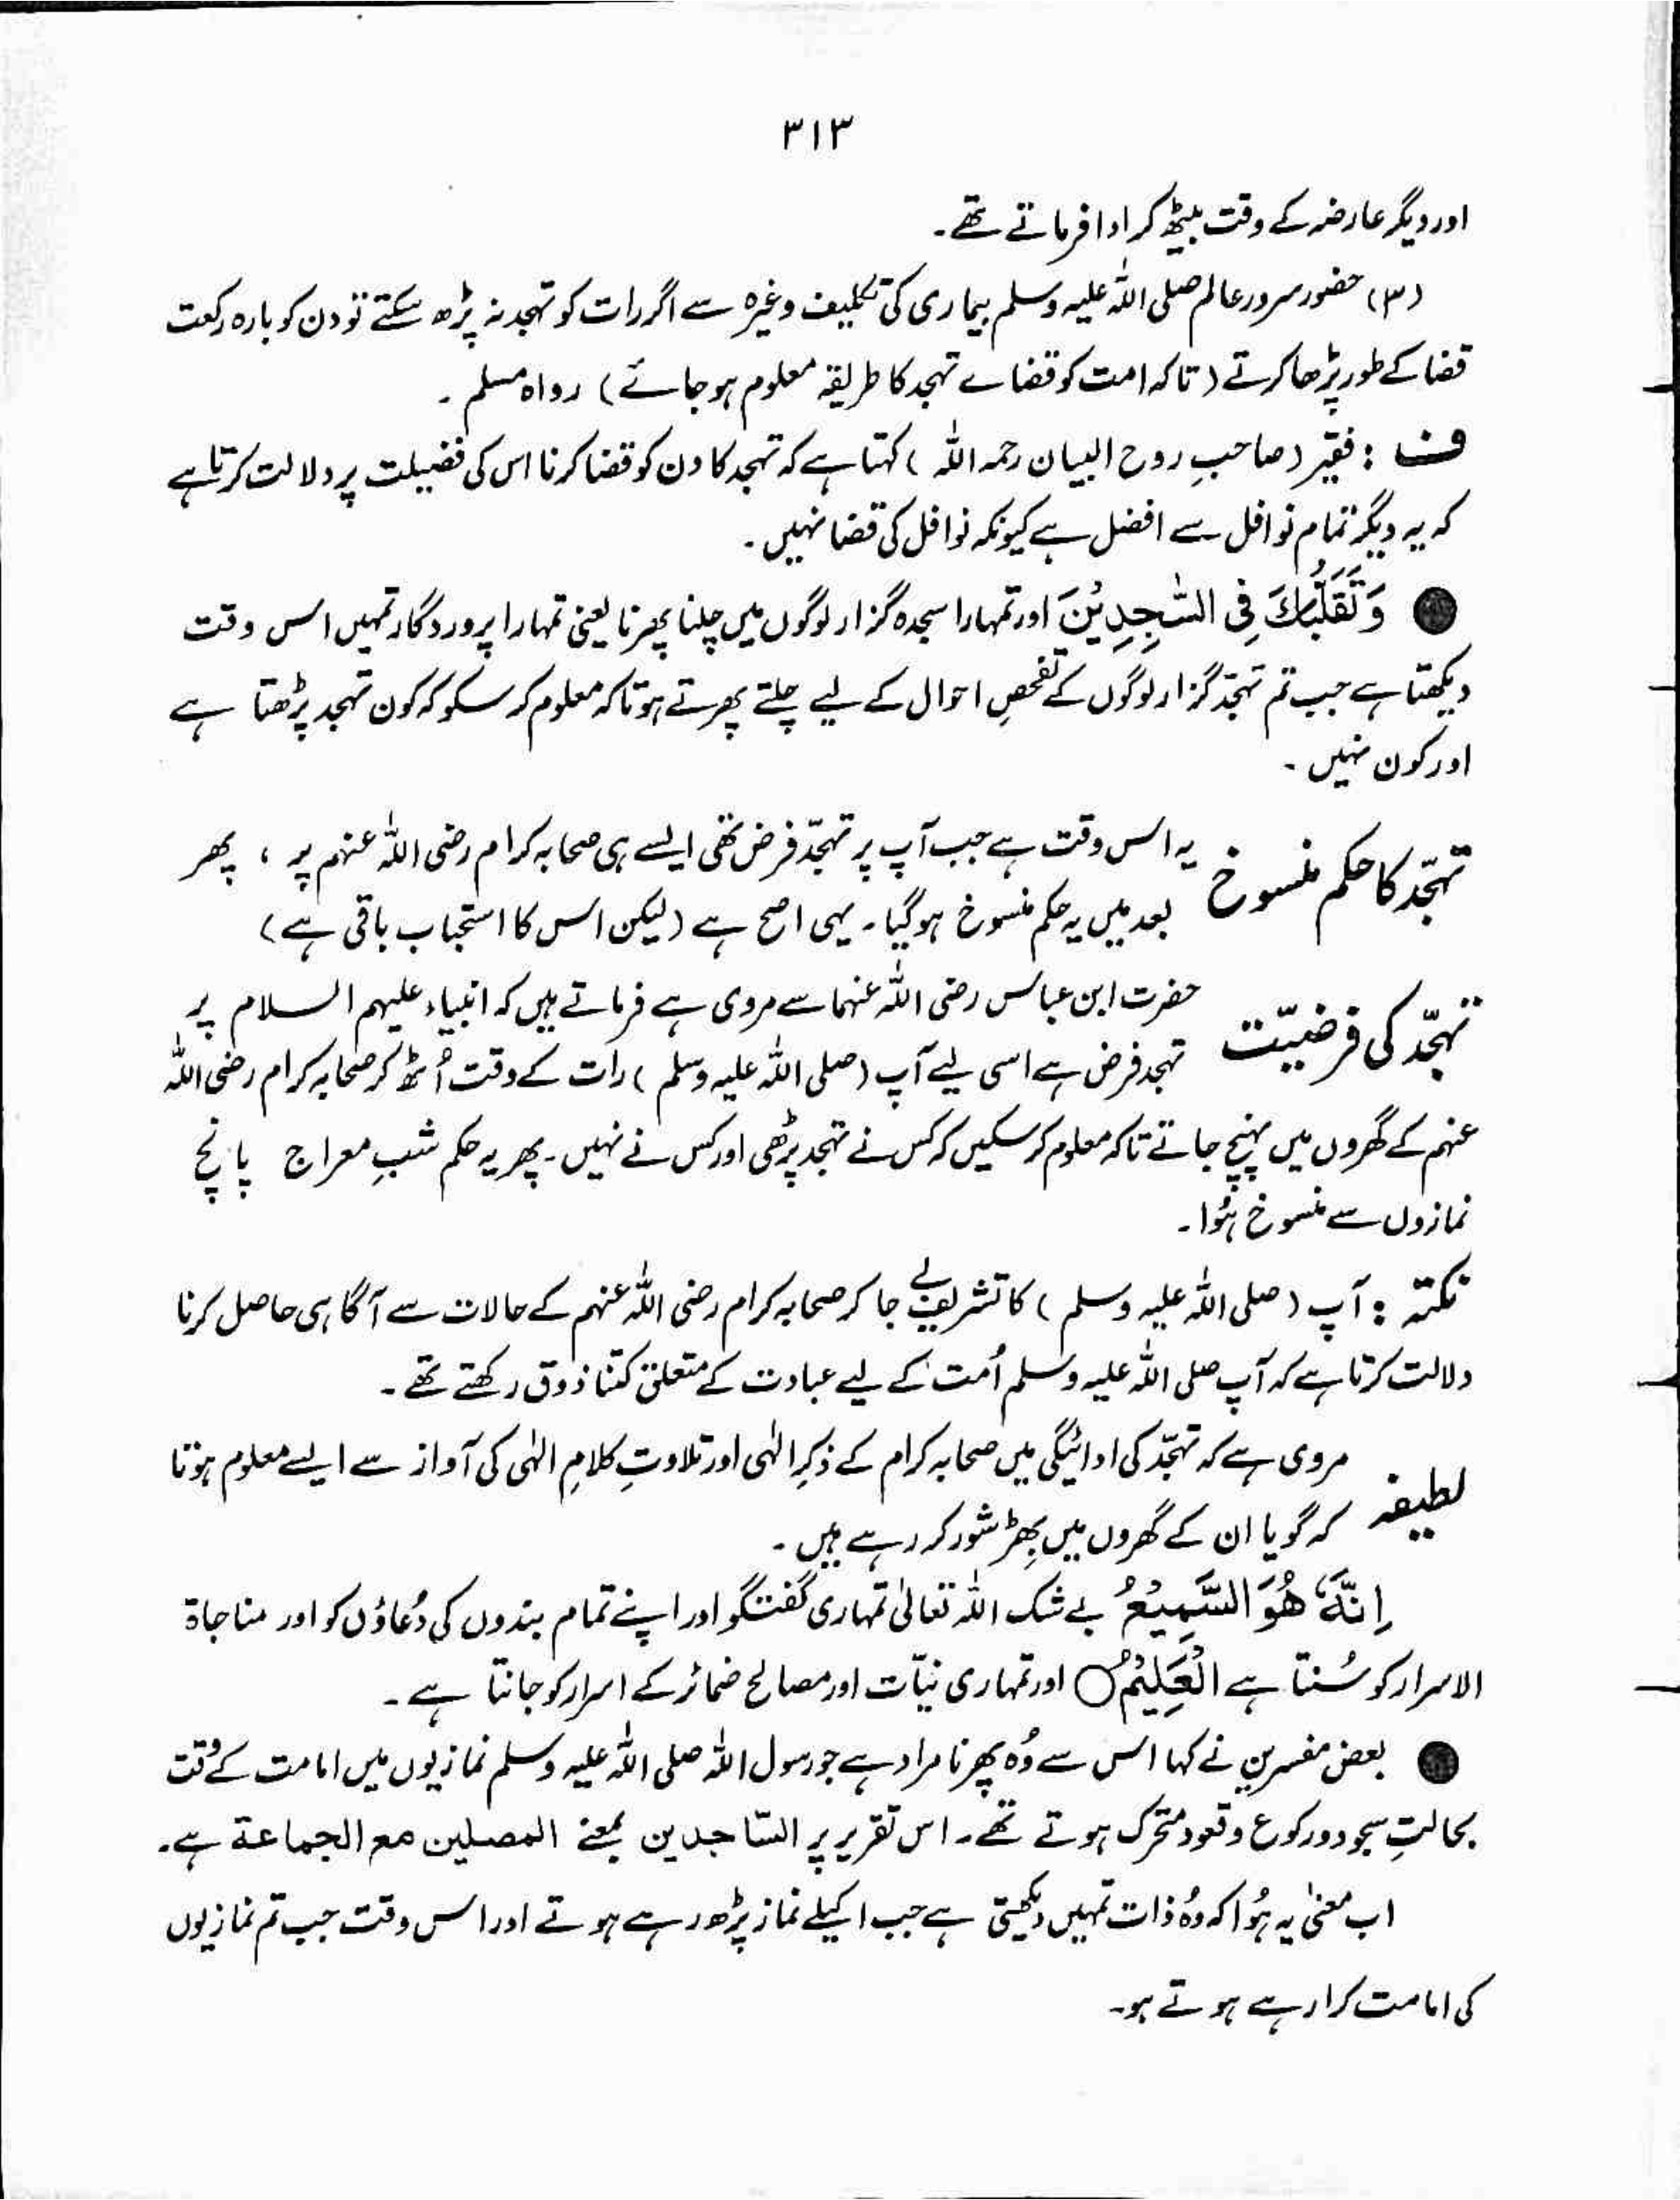 ۳۱۳
اور دیگر عارضہ کے وقت بیٹھ کر ادا فرماتے تھے۔
(۳) حضور سرور عالم صلی اللہ علیہ وسلم بیماری کی تکلیف وغیرہ سے اگر رات کو تہجد نہ پڑھ سکتے تو دن کو بارہ رکعت
قضا کے طور پڑھا کرتے (تاکہ امت کو قضائے تہجد کا طریقہ معلوم ہو جائے) رواہ مسلم ۔
ف : فقیر (صاحبِ روح البیان رحمہ اللہ) کہتا ہے کہ تہجد کا دن کو قضا کرنا اس کی فضیلت پر دلالت کرتا ہے
کہ یہ دیگر تمام نوافل سے افضل ہے کیونکہ نوافل کی قضا نہیں ۔
● وَتَقَلُّبَكَ فِی السّٰجِدِیْنَ اور تمہارا سجدہ گزار لوگوں میں چلنا پھرنا یعنی تمہارا پروردگار تمہیں اس وقت
دیکھتا ہے جب تم تہجّد گزار لوگوں کے تفحصِ احوال کے لیے چلتے پھرتے ہو تاکہ معلوم کر سکو کہ کون تہجد پڑھتا ہے
اور کون نہیں ۔
تہجّد کا حکم منسوخ یہ اس وقت ہے جب آپ پر تہجّد فرض تھی ایسے ہی صحابہ کرام رضی اللہ عنہم پر ، پھر
بعد میں یہ حکم منسوخ ہو گیا۔ یہی اصح ہے (لیکن اس کا استحباب باقی ہے)
تہجّد کی فرضیّت حضرت ابن عباس رضی اللہ عنہما سے مروی ہے فرماتے ہیں کہ انبیاء علیہم السلام پر
تہجد فرض ہے اسی لیے آپ (صلی اللہ علیہ وسلم) رات کے وقت اُٹھ کر صحابہ کرام رضی اللہ
عنہم کے گھروں میں پہنچ جاتے تاکہ معلوم کر سکیں کہ کس نے تہجد پڑھی اور کس نے نہیں۔ پھر یہ حکم شبِ معراج پانچ
نمازوں سے منسوخ ہُوا۔
نکتہ : آپ (صلی اللہ علیہ وسلم) کا تشریف لے جا کر صحابہ کرام رضی اللہ عنہم کے حالات سے آگاہی حاصل کرنا
دلالت کرتا ہے کہ آپ صلی اللہ علیہ وسلم اُمت کے لیے عبادت کے متعلق کتنا ذوق رکھتے تھے ۔
لطیفہ مروی ہے کہ تہجّد کی ادائیگی میں صحابہ کرام کے ذکرِ الٰہی اور تلاوتِ کلامِ الٰہی کی آواز سے ایسے معلوم ہوتا
کہ گویا ان کے گھروں میں بِھڑ شور کر رہے ہیں ۔
اِنَّهٗ هُوَ السَّمِیْعُ بے شک اللہ تعالیٰ تمہاری گفتگو اور اپنے تمام بندوں کی دُعاؤں کو اور مناجاۃ
الاسرار کو سُنتا ہے الْعَلِیْمُ○ اور تمہاری نیّات اور مصالح ضمائر کے اسرار کو جانتا ہے ۔
● بعض مفسرین نے کہا اس سے وُہ پھرنا مراد ہے جو رسول اللہ صلی اللہ علیہ وسلم نمازیوں میں امامت کے وقت
بحالتِ سجود و رکوع و قعود متحرک ہوتے تھے۔ اس تقریر پر السّاجدین بمعنے المصلین مع الجماعة ہے۔
اب معنیٰ یہ ہُوا کہ وُہ ذات تمہیں دیکھتی ہے جب اکیلے نماز پڑھ رہے ہوتے اور اس وقت جب تم نمازیوں
کی امامت کرا رہے ہوتے ہو۔